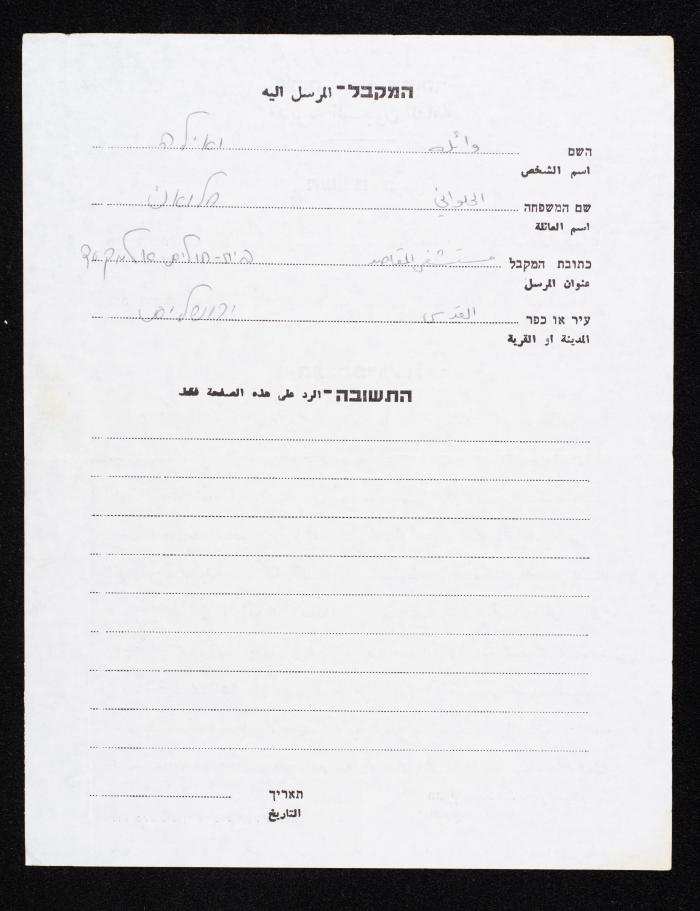 המקבל - المرسل اليه
השם وائله ואילה
اسم الشخص
שם המשפחה الحلواني חלואני
اسم العائلة
כתובת המקבל مستشفى المقاصد בית-חולים אלמקאסד
عنوان المرسل
עיר או כפר القدس ירושלים
المدينة او القرية
התשובה - الرد على هذه الصفحة فقط
תאריך
التاريخ